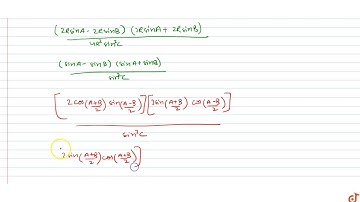 (2RsinA - 2RsinB) (2RsinA + 2RsinB)
4R²sin²C
(sinA - sinB) (sinA + sinB)
sin²C
[2cos(A+B/2) sin(A-B/2)][2sin(A+B/2) cos(A-B/2)]
sin²C
2sin(A+B/2) cos(A+B/2)]